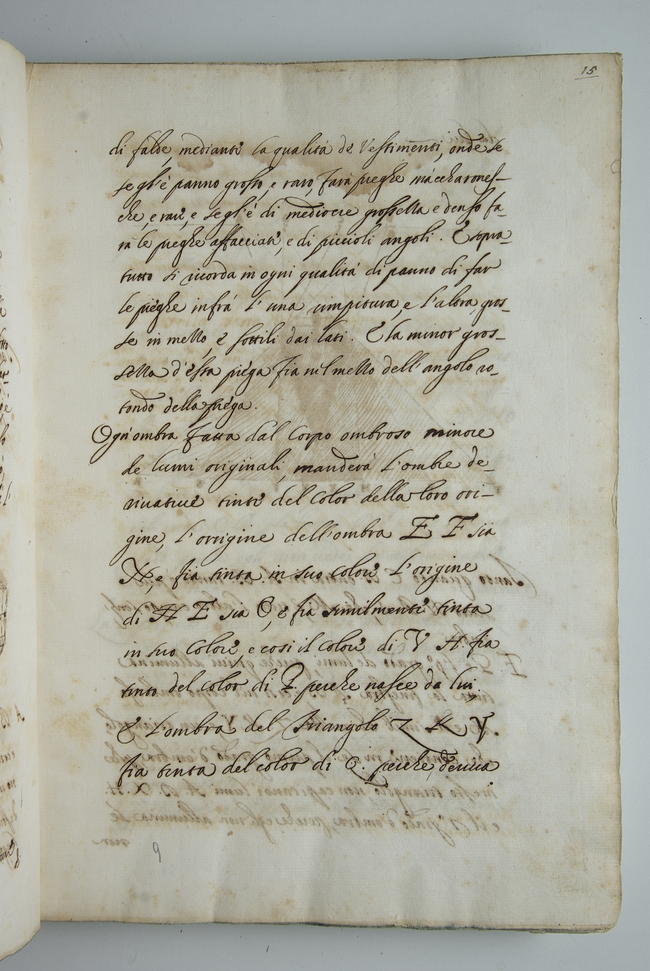 15
di falde, mediante la qualità de Vestimenti, onde se
se gl'è panno grosso, e raro, farà pieghe maccharones-
che, e rare, e se gl'è di mediocre grossezza e denso fa-
rà le pieghe affacciate, e di piccioli angoli. E sopra-
tutto si ricorda in ogni qualità di panno di far
le pieghe infrà l'una rimpitura, e l'altra, gros-
se in mezzo, e sottili dai lati. E la minor gros-
sezza d'essa piega sia nel mezzo dell'angolo ro-
tondo della piega.
Ogn'ombra fatta dal Corpo ombroso minore
de lumi originali, manderà l'ombre de-
rivative tinte del Color della loro ori-
gine, l'origine dell'ombra E F sia
N, e fia tinta in suo colore l'origine
di H E sia O, e fia similmente tinta
in suo Colore, e cosi il Colore di V H fia
tinto del color di P. perche nasce da lui.
E l'ombra del Triangolo Z K Y.
fia tinta del color di Q. perche deriva
9